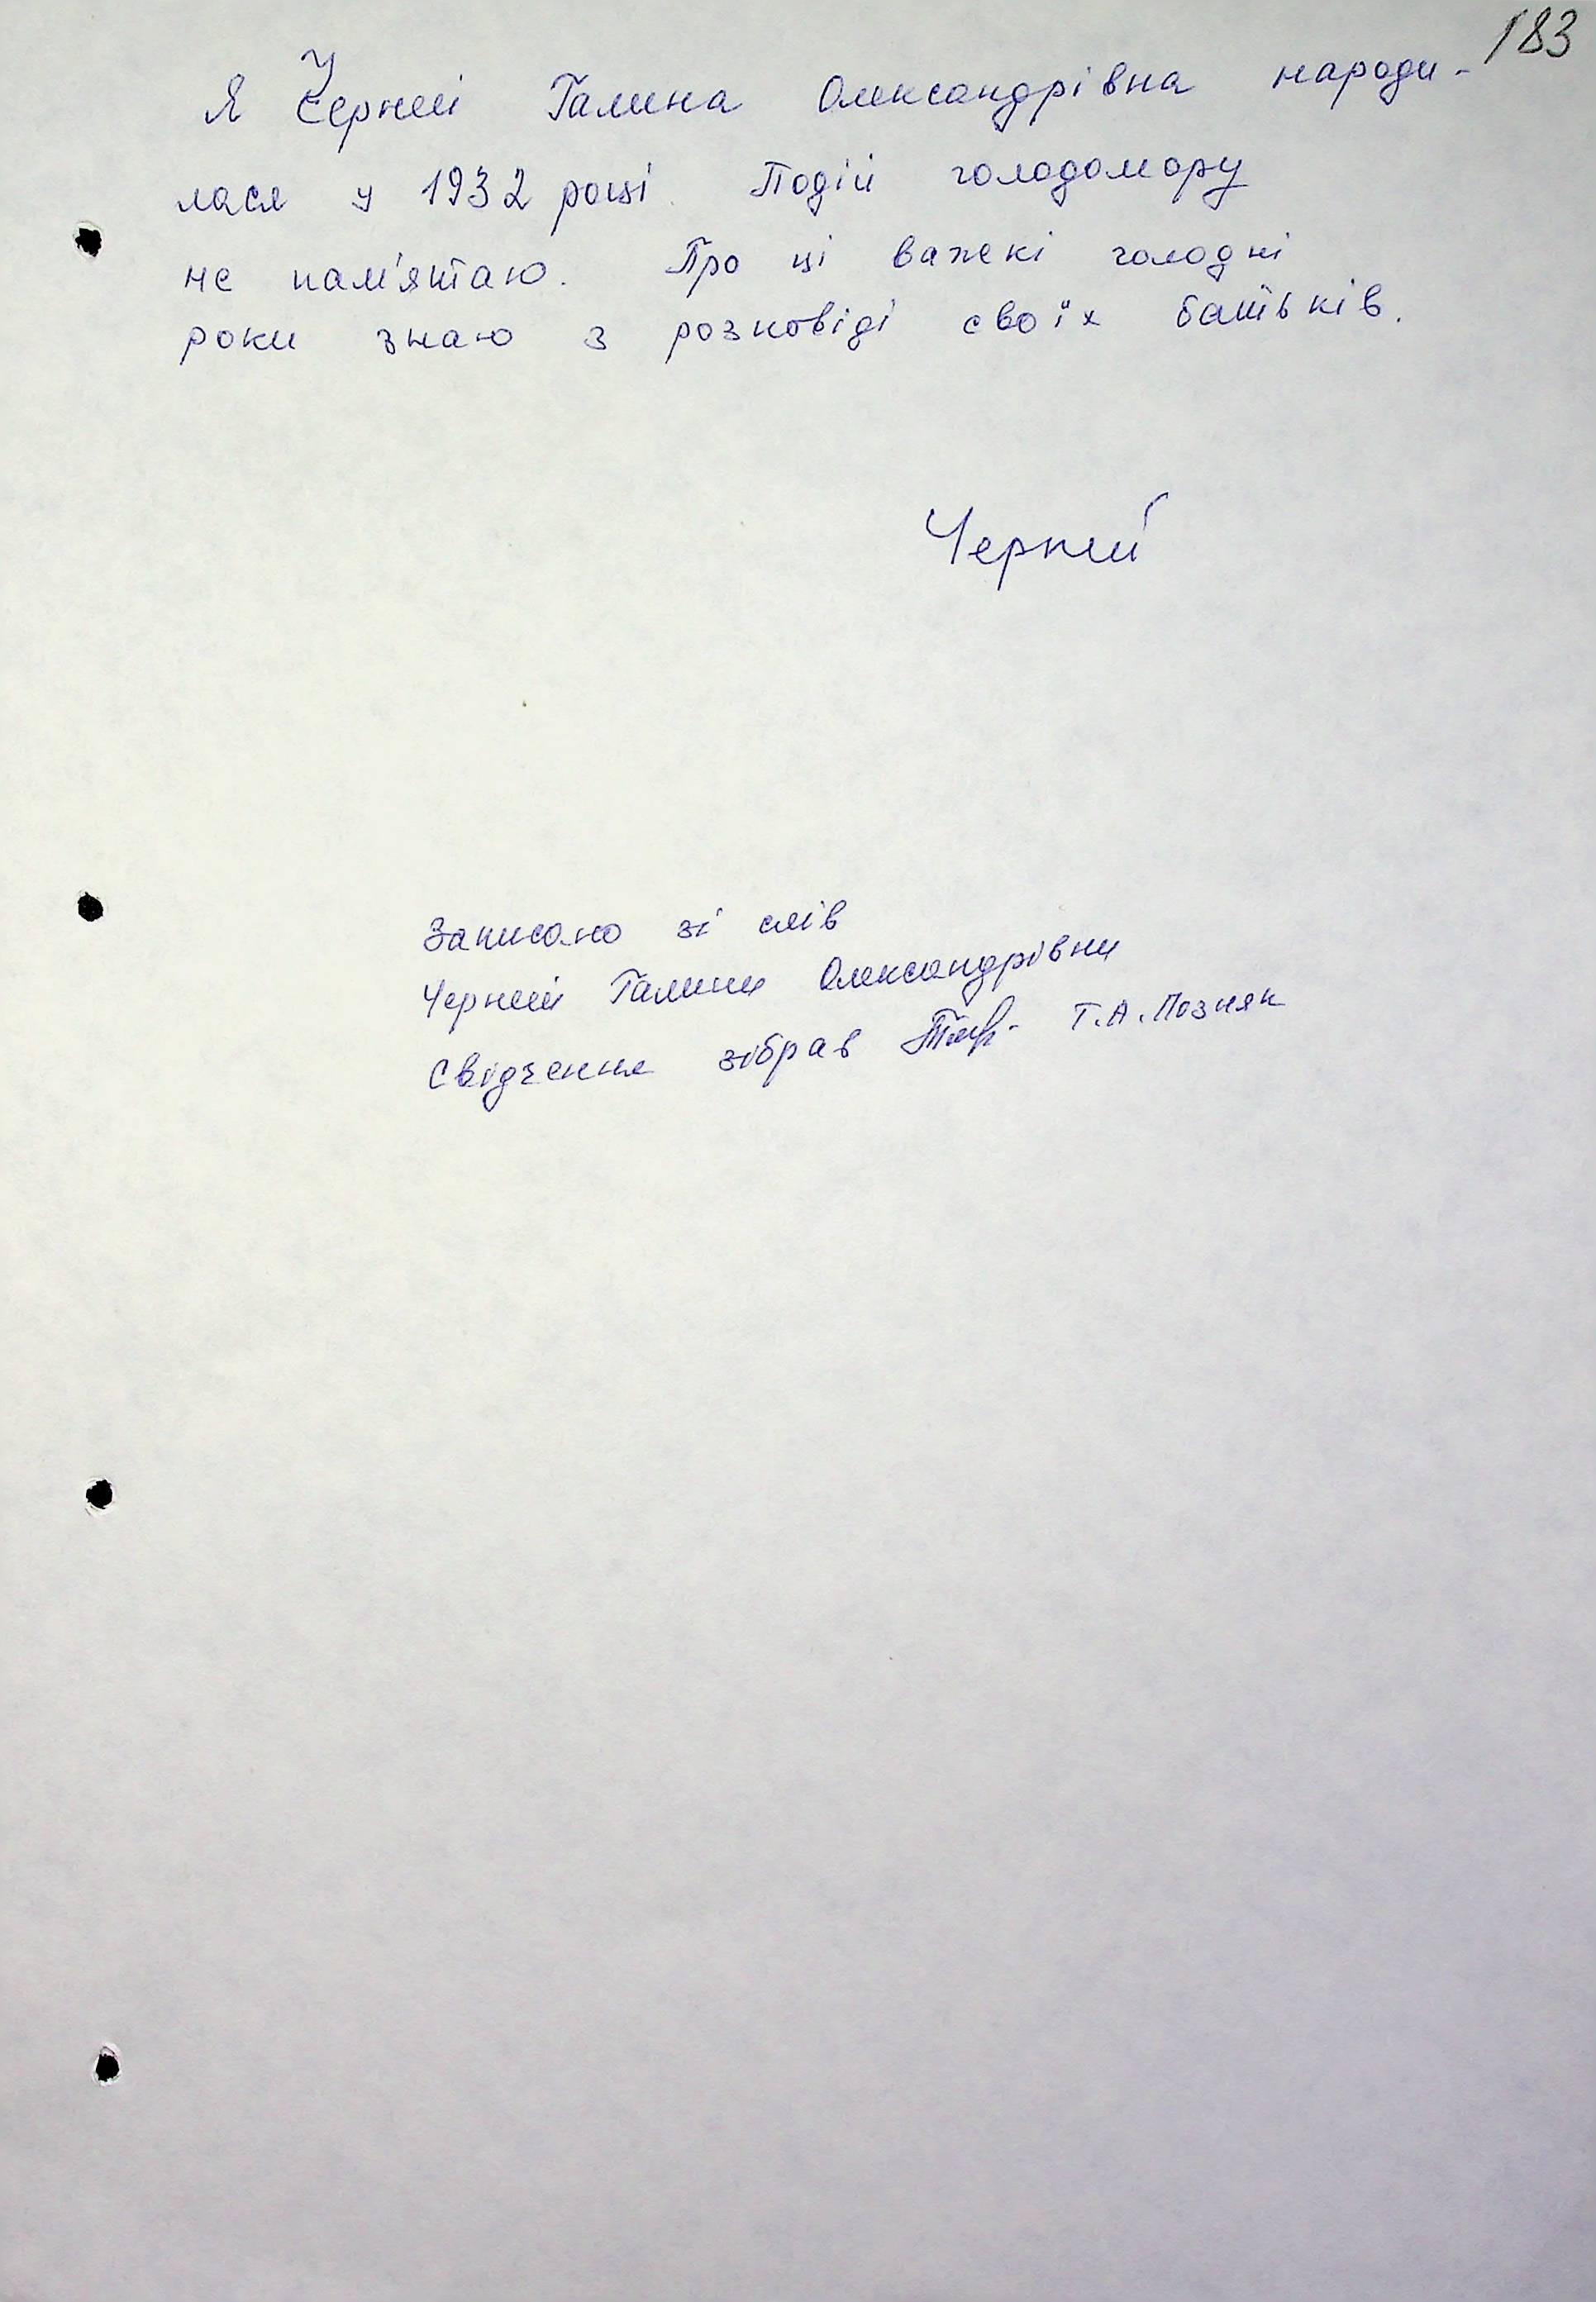 183
Я Черній Галина Олександрівна народи-
лася у 1932 році. Подій голодомору
не пам'ятаю. Про ці важкі голодні
роки знаю з розповіді своїх батьків.
Черній
Записано зі слів
Черній Галини Олександрівни
Свідчення зібрав Т.А. Позняк